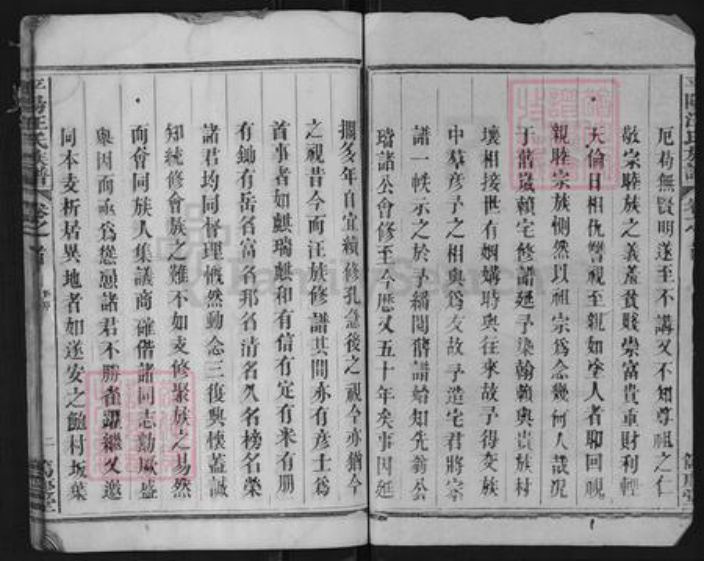 厄苟無賢明遂至不講又不知尊祖之仁
敬宗睦族之義羞貧賤崇富貴重財利輕
天倫日相仇讐視至親如塗人者聊回視
親睦宗族惻然以祖宗為念幾何人哉況
于舊歲賴宅修譜延予染翰賴與貴族村
壤相接世有婣媾時與往來故予得交族
中羣彥予之相與為友故予造宅君將宗
譜一帙示之於予繙閱舊譜始知先翁公
璿諸公會修至今歷又五十年矣事因延
擱多年自宜續修孔急後之視今亦猶今
之視昔今而汪族修譜其間亦有彥士為
首事者如麒瑞麒和有信有定有來有朋
有鋤有岳名富名邦名清名久名榜名榮
諸君均同督理慨然動念三復興懷蓋誠
知統修會族之難不如支修聚族之易然
而會同族人集議商確偕諸同志勷厥盛
舉因而亟為慫慂諸君不勝雀躍繼又邀
同本支析居異地者如遂安之